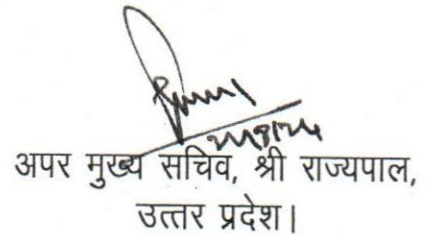 अपर मुख्य सचिव, श्री राज्यपाल,
उत्तर प्रदेश।